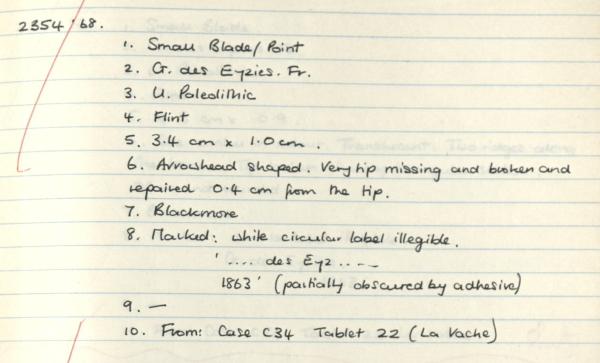 2354 '68.
1. Small Blade/Point
2. G. des Eyzies. Fr.
3. U. Paleolithic
4. Flint
5. 3.4 cm x 1.0 cm.
6. Arrowhead shaped. Very tip missing and broken and
repaired 0.4 cm from the tip.
7. Blackmore
8. Marked: white circular label illegible.
'.... des Eyz....
1863' (partially obscured by adhesive)
9. —
10. From: Case C34 Tablet 22 (La Vache)